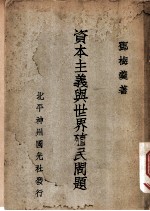 鄧楨龔著
資本主義與世界殖民問題
北平神州國光社發行